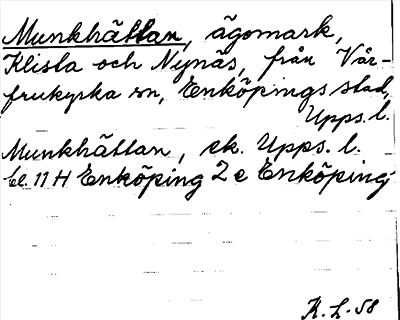 Munkhättan, ägomark,
Klista och Nynäs, från Vår-
frukyrka sn, Enköpings stad,
Upps. l.
Munkhättan, ek. Upps. l.
bl. 11 H Enköping 2 e Enköping
K. L. 58